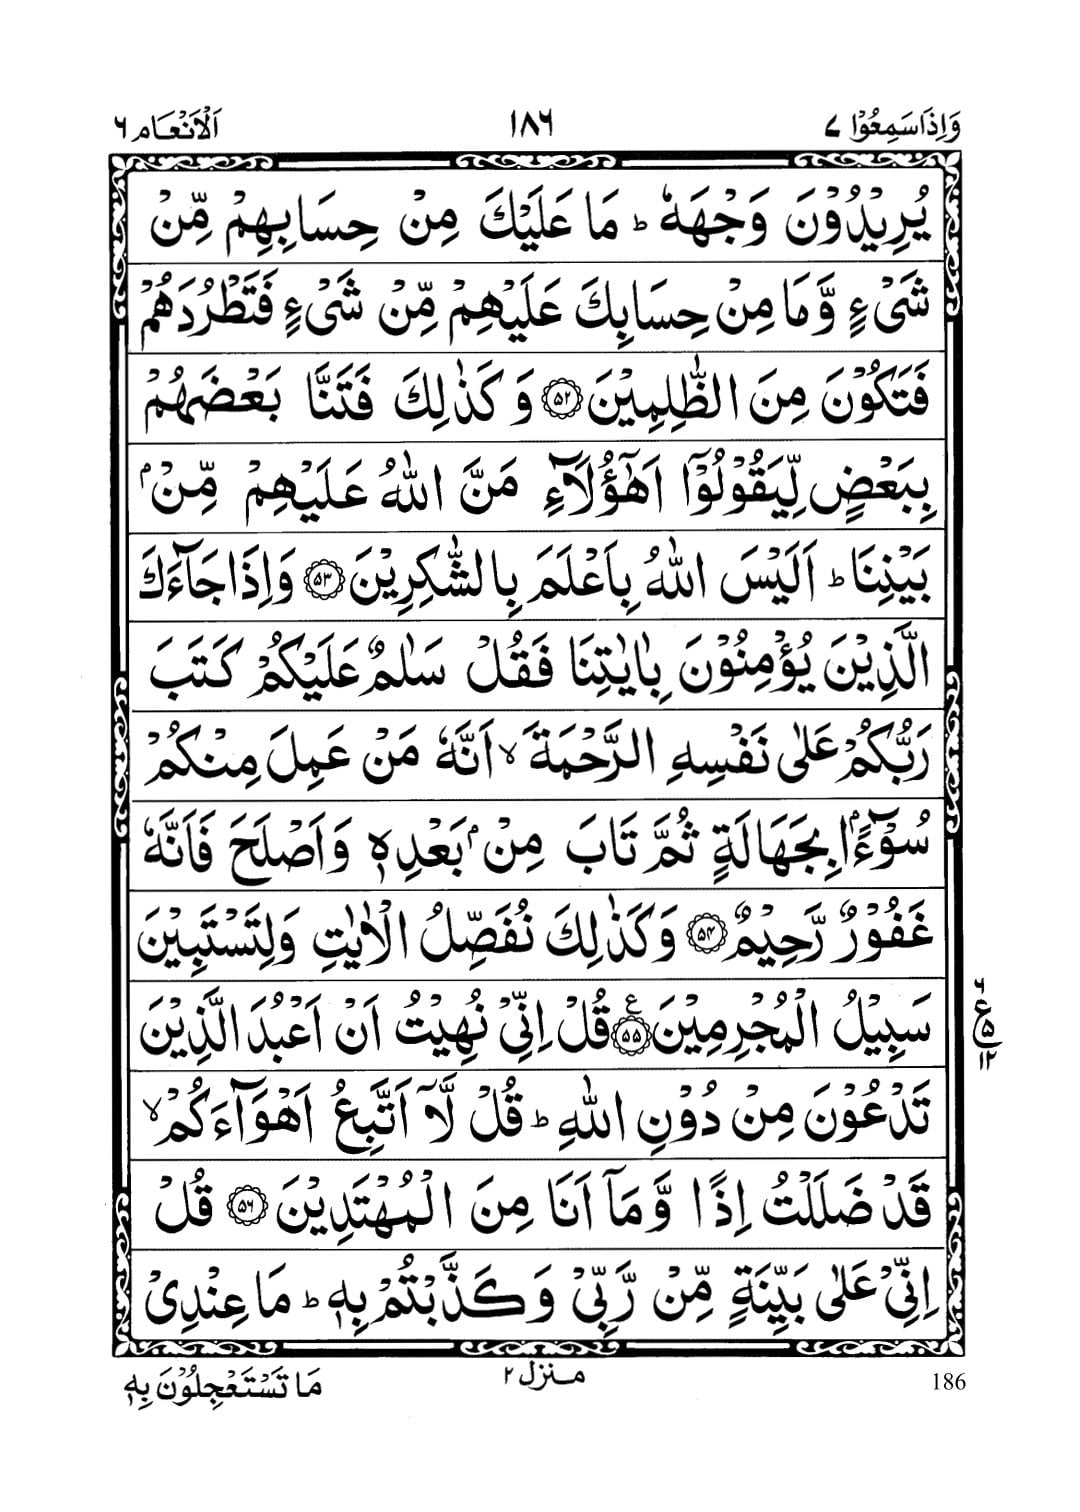 وَاِذَاسَمِعُوْا ۷
۱۸۶
اَلْاَنْعَام ۶
يُرِيْدُوْنَ وَجْهَهٗ ؕ مَا عَلَيْكَ مِنْ حِسَابِهِمْ مِّنْ
شَىْءٍ وَّمَا مِنْ حِسَابِكَ عَلَيْهِمْ مِّنْ شَىْءٍ فَتَطْرُدَهُمْ
فَتَكُوْنَ مِنَ الظّٰلِمِيْنَ ﴿۵۲﴾ وَكَذٰلِكَ فَتَنَّا بَعْضَهُمْ
بِبَعْضٍ لِّيَقُوْلُوْۤا اَهٰۤؤُلَآءِ مَنَّ اللّٰهُ عَلَيْهِمْ مِّنْۢ
بَيْنِنَا ؕ اَلَيْسَ اللّٰهُ بِاَعْلَمَ بِالشّٰكِرِيْنَ ﴿۵۳﴾ وَاِذَا جَآءَكَ
الَّذِيْنَ يُؤْمِنُوْنَ بِاٰيٰتِنَا فَقُلْ سَلٰمٌ عَلَيْكُمْ كَتَبَ
رَبُّكُمْ عَلٰى نَفْسِهِ الرَّحْمَةَ ۙ اَنَّهٗ مَنْ عَمِلَ مِنْكُمْ
سُوْٓءًۢا بِجَهَالَةٍ ثُمَّ تَابَ مِنْۢ بَعْدِهٖ وَاَصْلَحَ فَاَنَّهٗ
غَفُوْرٌ رَّحِيْمٌ ﴿۵۴﴾ وَكَذٰلِكَ نُفَصِّلُ الْاٰيٰتِ وَلِتَسْتَبِيْنَ
سَبِيْلُ الْمُجْرِمِيْنَ ﴿۵۵﴾ ع قُلْ اِنِّىْ نُهِيْتُ اَنْ اَعْبُدَ الَّذِيْنَ
تَدْعُوْنَ مِنْ دُوْنِ اللّٰهِ ؕ قُلْ لَّاۤ اَتَّبِعُ اَهْوَآءَكُمْ ۙ
قَدْ ضَلَلْتُ اِذًا وَّمَاۤ اَنَا مِنَ الْمُهْتَدِيْنَ ﴿۵۶﴾ قُلْ
اِنِّىْ عَلٰى بَيِّنَةٍ مِّنْ رَّبِّىْ وَكَذَّبْتُمْ بِهٖ ؕ مَا عِنْدِىْ
۶
ع
۵
۱۲
186
منزل ۲
مَا تَسْتَعْجِلُوْنَ بِهٖ